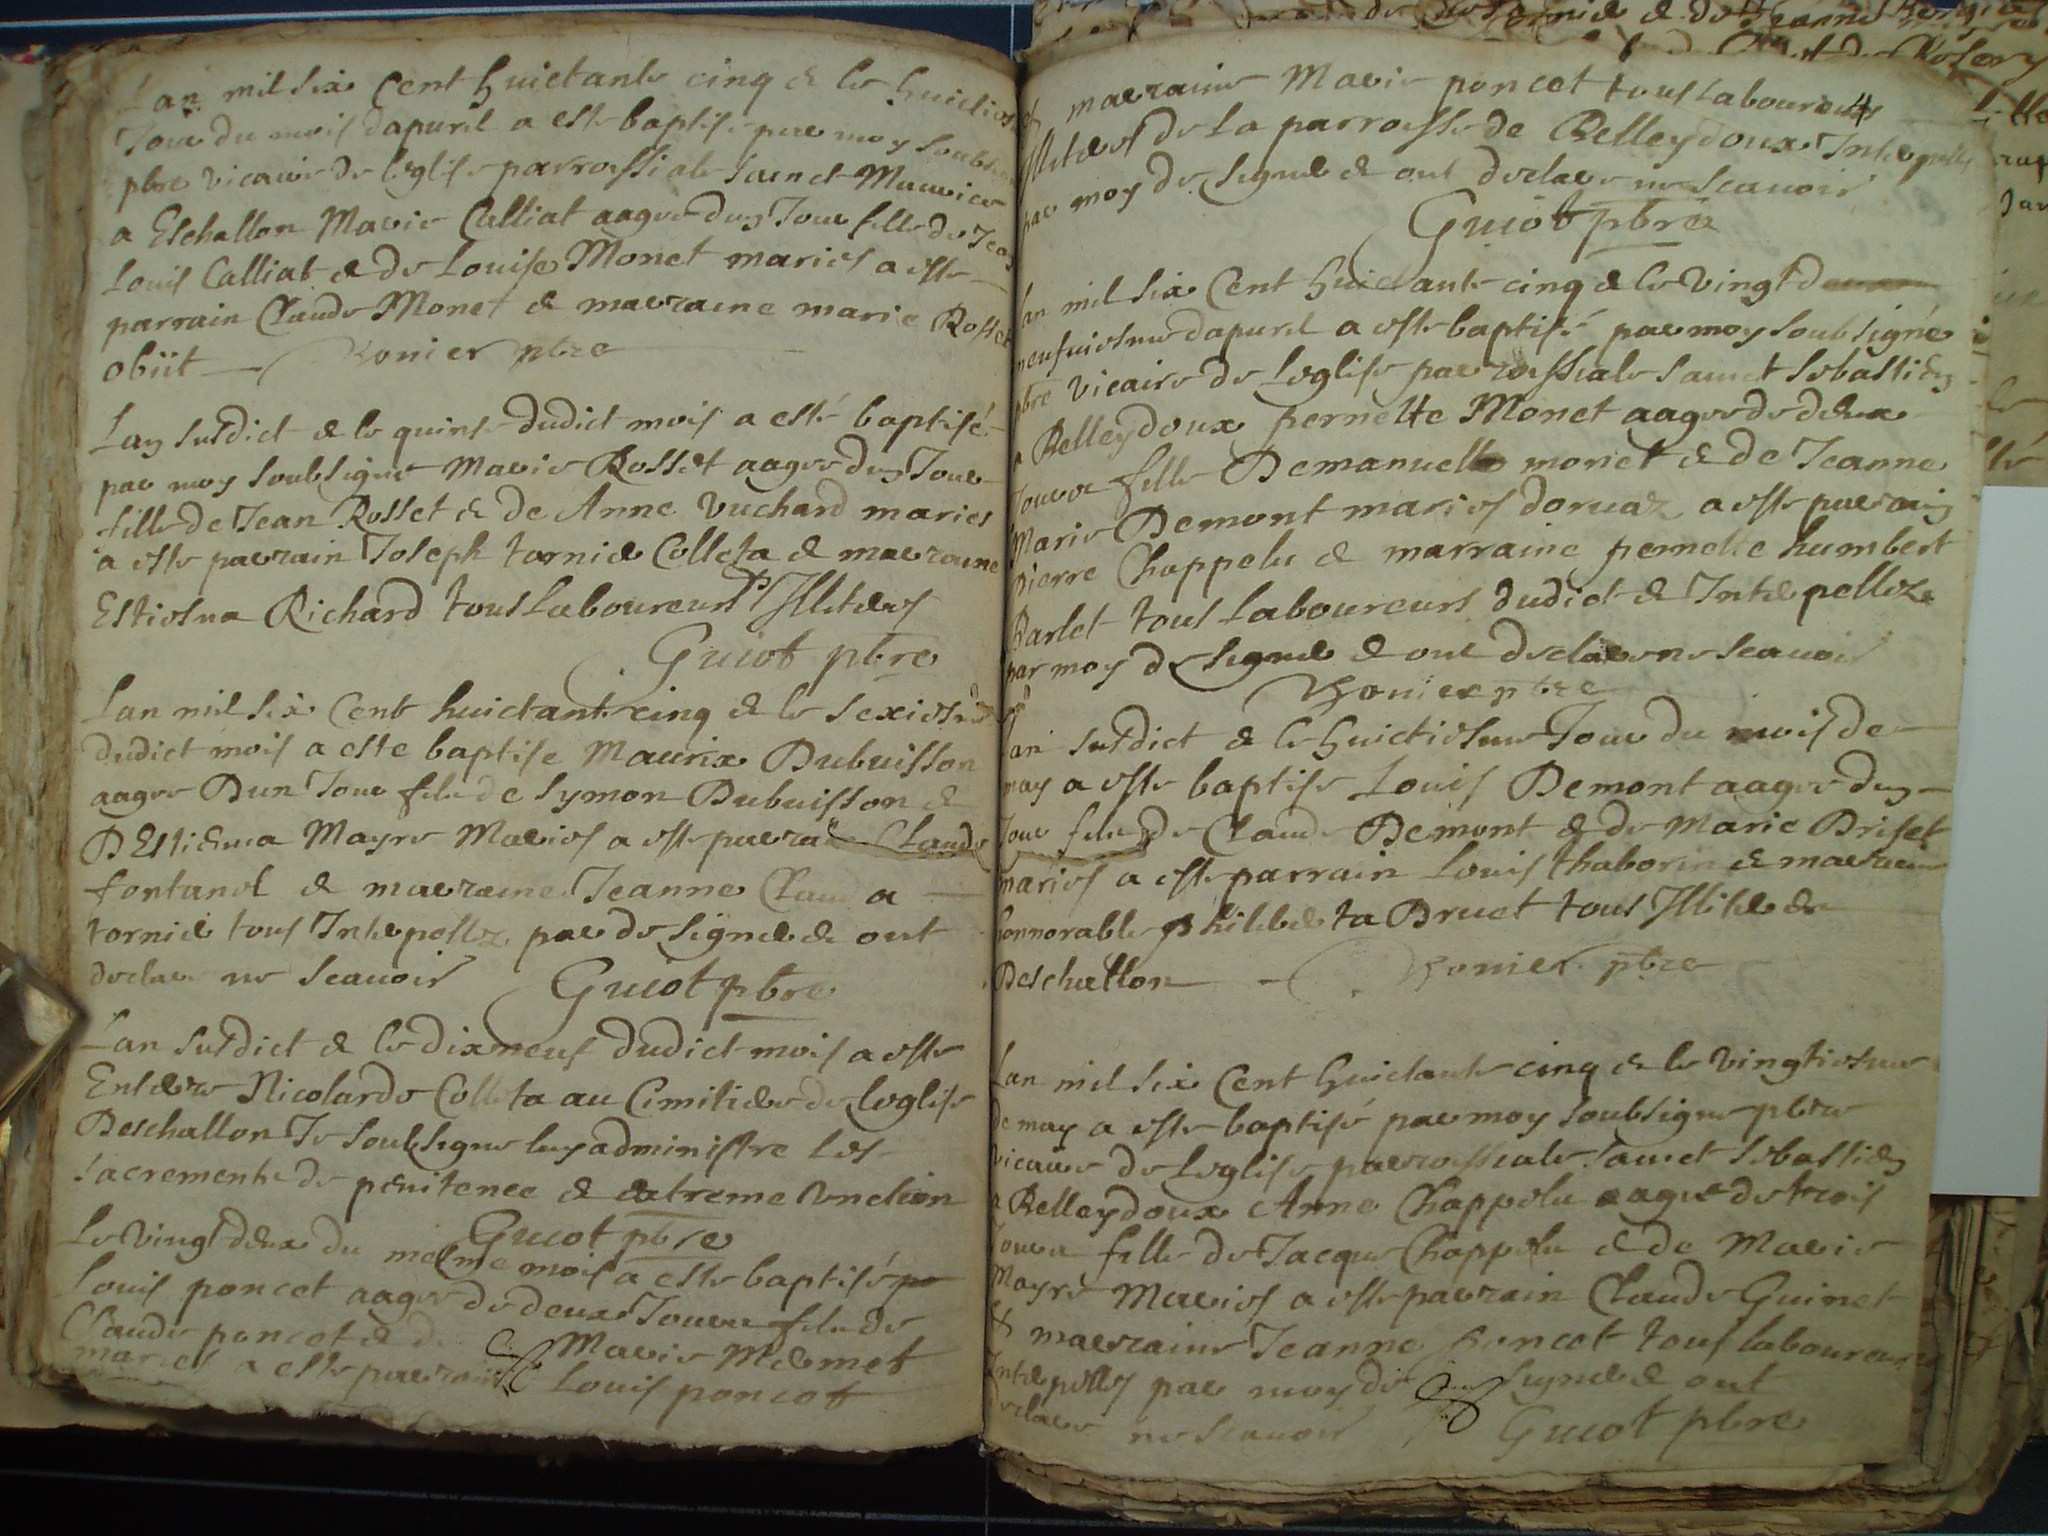 Lan mil six Cent huictante cinq & le huicties
Jour du mois dapuril a este baptise par moy soubs
pbre vicaire de leglise parrossiale sainct Maurice
a Eschallon Marie Calliat aagee dung Jour fille de Jean
Louis Calliat & de Louise Monet maries a este
parrain Claude Monet & marraine marie Rosset
obiit ptre
Lan susdict & le quinse dudict mois a esté baptisé
par moy soubsigne Marie Rosset aagee dung Jour
fille de Jean Rosset & de Anne vuchard maries
a este parrain Joseph tornier Colleta & marraine
Estiesna Richard tous laboureurs Illiteres
Guiot pbre
Lan mil six Cent huictante cinq & le sexiesme
dudict mois a este baptise Maurix Dubuisson
aagee Dun Jour fils de Symon Dubuisson &
DEstiena Mayre Maries a este parrain Claude
fontanel & marraine Jeanne Clauda
tornier tous Interpellz par de signer & ont
declare ne scauoir Guiot pbre
Lan susdict & le dixneuf dudict mois a este
Enterre Nicolarde Colleta au Cimitiere de leglise
Deschallon Je soubsigne luy administre les
sacrements de penitence & extreme vnction
Guiot pbre
Le vingt deux du mesme mois a este baptisé
Louis poncet aagee de deux Jours fils de
Claude poncet & de Marie Mermet
maries a este parrain Louis poncet
& marraine Marie poncet tous laboureurs
Illiteres de la parroesse de Belleydoux Interpelles
par moy de signer & ont declare ne scauoir
Guiot pbre
Lan mil six Cent huictante cinq & le vingt
neufuiesme dapuril a este baptisé par moy soubsigné
pbre vicaire de leglise parrossiale sainct sebastien
a Belleydoux pernette Monet aagee de deux
Jours fille Demanuel monet & de Jeanne
Marie Demont maries doruaz a este parrain
pierre Chappelu & marraine pernette humbert
Barlet tous laboureurs dudict & Interpellez
par moy de signer & ont declare ne scauoir
ptre
Lan susdict & le huictiesme Jour du mois de
may a este baptise Louis Demont aagee dung
Jour fils de Claude Demont & de Marie Briset
maries a este parrain Louis thaborin & marraine
honnorable philiberta Druet tous Illiteres
Deschallon ptre
Lan mil six Cent huictante cinq & le vingtiesme
de may a este baptisé par moy soubsigne pbre
vicaire de leglise parrossiale sainct sebastien
a Belleydoux Anne Chappelu aagee de trois
Jours fille de Jacque Chappelu & de Marie
Mayre Maries a este parrain Claude Guinet
& marraine Jeanne poncet tous laboureurs
Interpelles par moy de signer & ont
declare ne scauoir Guiot pbre